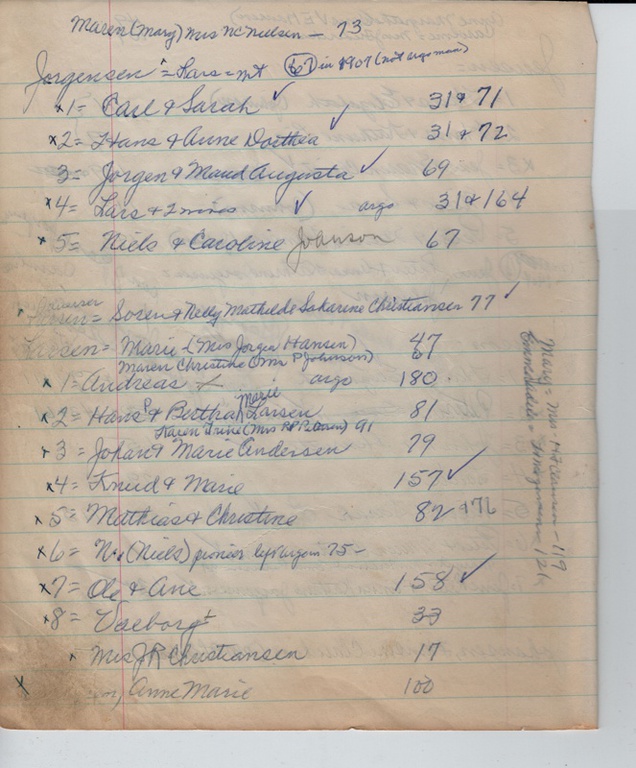 Maren (Mary) Mrs NC Nielsen - 73
Jorgensen = Lars = mt 67 in 1907 (not argo man)
x1 = Carl & Sarah ✓ 31 & 71
x2 = Hans & Anne Dorthea ✓ 31 & 72
3 = Jorgen & Maud Augusta ✓ 69
x4 = Lars & 2 wives ✓ argo 31 & 164
x5 = Niels & Caroline Johnson 67
= Soren & Nelly Mathilde Sakarine Christiansen 77 ✓
Larsen = Marie - (Mrs Jorgen Hansen) 47
Maren Christine (Mrs P Johnson) 67
x1 = Andreas argo 180.
x2 = Hans P & Bertha Marie Larsen 81
Karen Trine (Mrs RP 91
x3 = Johan & Marie Andersen 79
x4 = Knud & Marie 157 ✓
x5 = Mathias & Christine 82 + 76
x6 = N. (Niels) pioneer left argo in 75 -
x7 = Ole & Ane 158 ✓
x8 = 33
x Mrs JP Christiansen 17
x Anne Marie 100
Mary = Mrs Clausen - 119
= 121